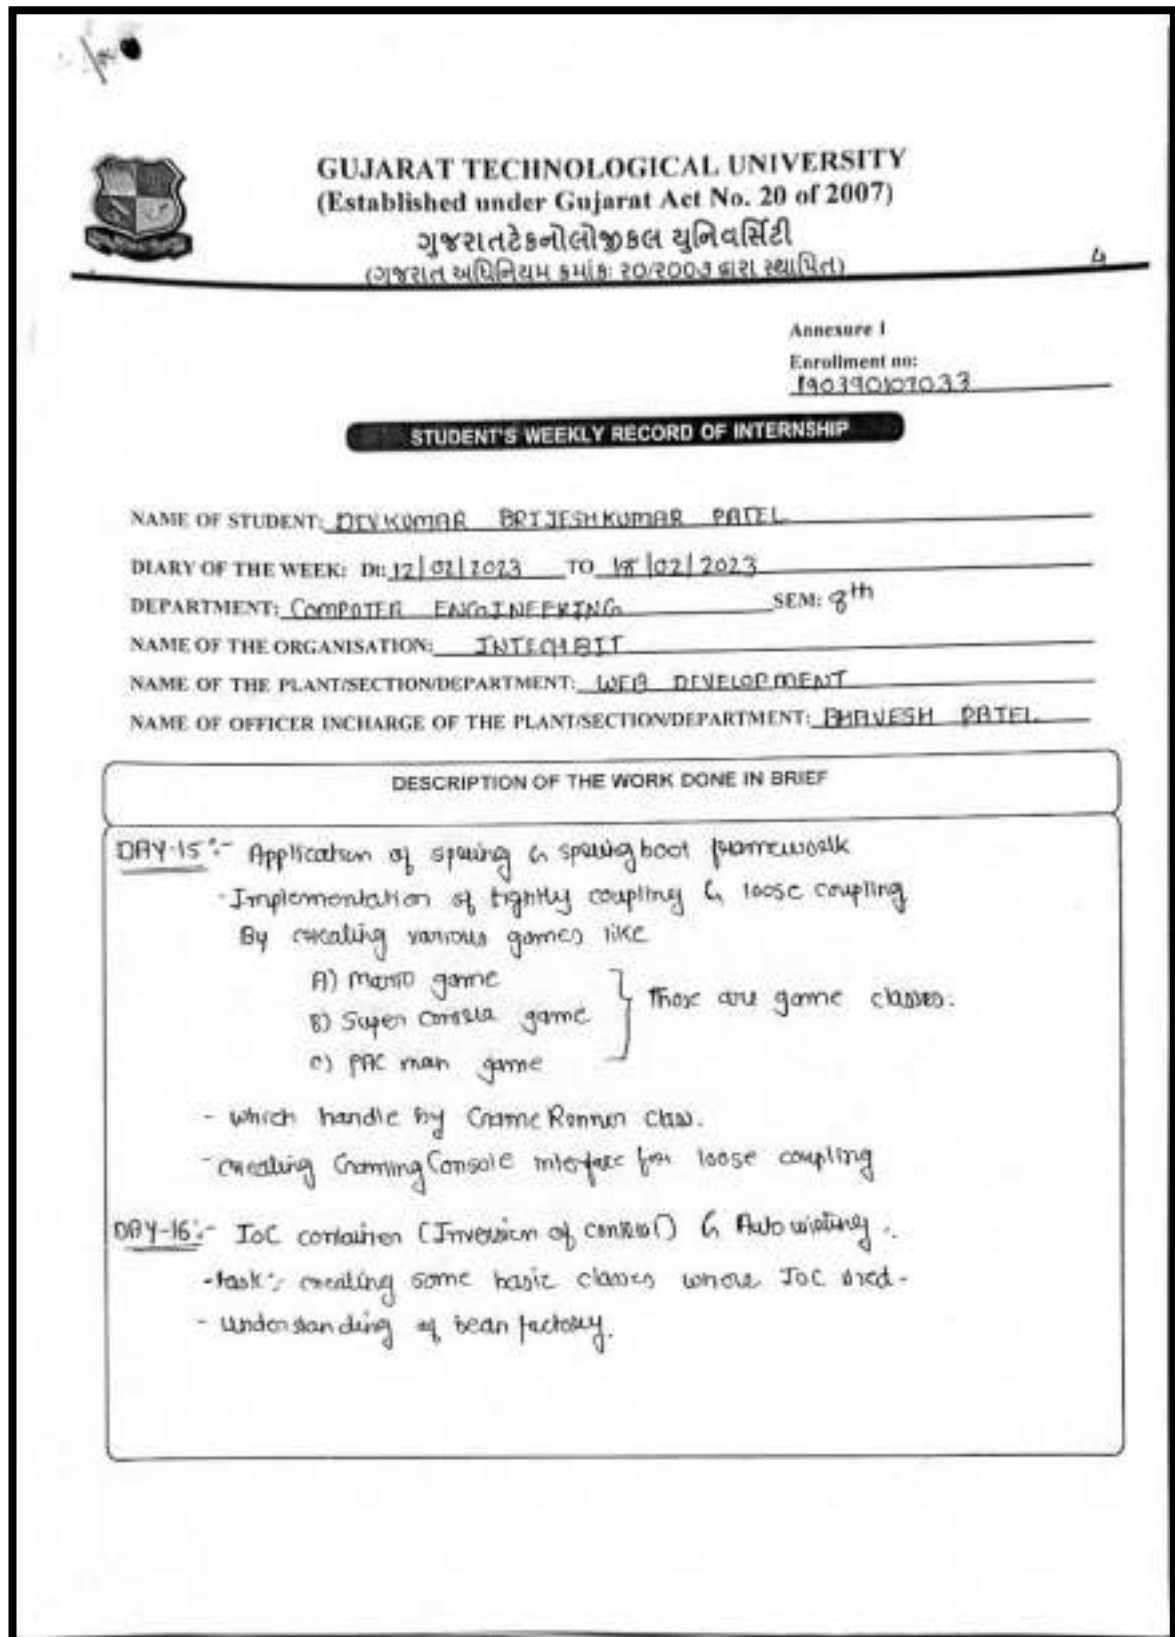 GUJARAT TECHNOLOGICAL UNIVERSITY
(Established under Gujarat Act No. 20 of 2007)
ગુજરાતટેકનોલોજીકલ યુનિવર્સિટી
(ગુજરાત અધિનિયમ ક્રમાંકઃ ૨૦/૨૦૦૭ દ્વારા સ્થાપિત)
4
Annexure 1
Enrollment no:
190390107033
STUDENT'S WEEKLY RECORD OF INTERNSHIP
NAME OF STUDENT: DEVKUMAR BRIJESHKUMAR PATEL
DIARY OF THE WEEK: Dt: 12/02/2023 TO 18/02/2023
DEPARTMENT: COMPUTER ENGINEERING SEM: 8th
NAME OF THE ORGANISATION: INTECHBIT
NAME OF THE PLANT/SECTION/DEPARTMENT: WEB DEVELOPMENT
NAME OF OFFICER INCHARGE OF THE PLANT/SECTION/DEPARTMENT: BHAVESH PATEL
DESCRIPTION OF THE WORK DONE IN BRIEF
DAY-15:- Application of spring & springboot framework
- Implementation of tightly coupling & loose coupling
By creating various games like
A) Mario game
B) Super Contra game } Those are game classes.
C) PAC man game
- which handle by GameRunner class.
- creating GamingConsole interface for loose coupling
DAY-16:- IoC container (Inversion of control) & Autowiring.
- task: creating some basic classes where IoC used-
- understanding of bean factory.